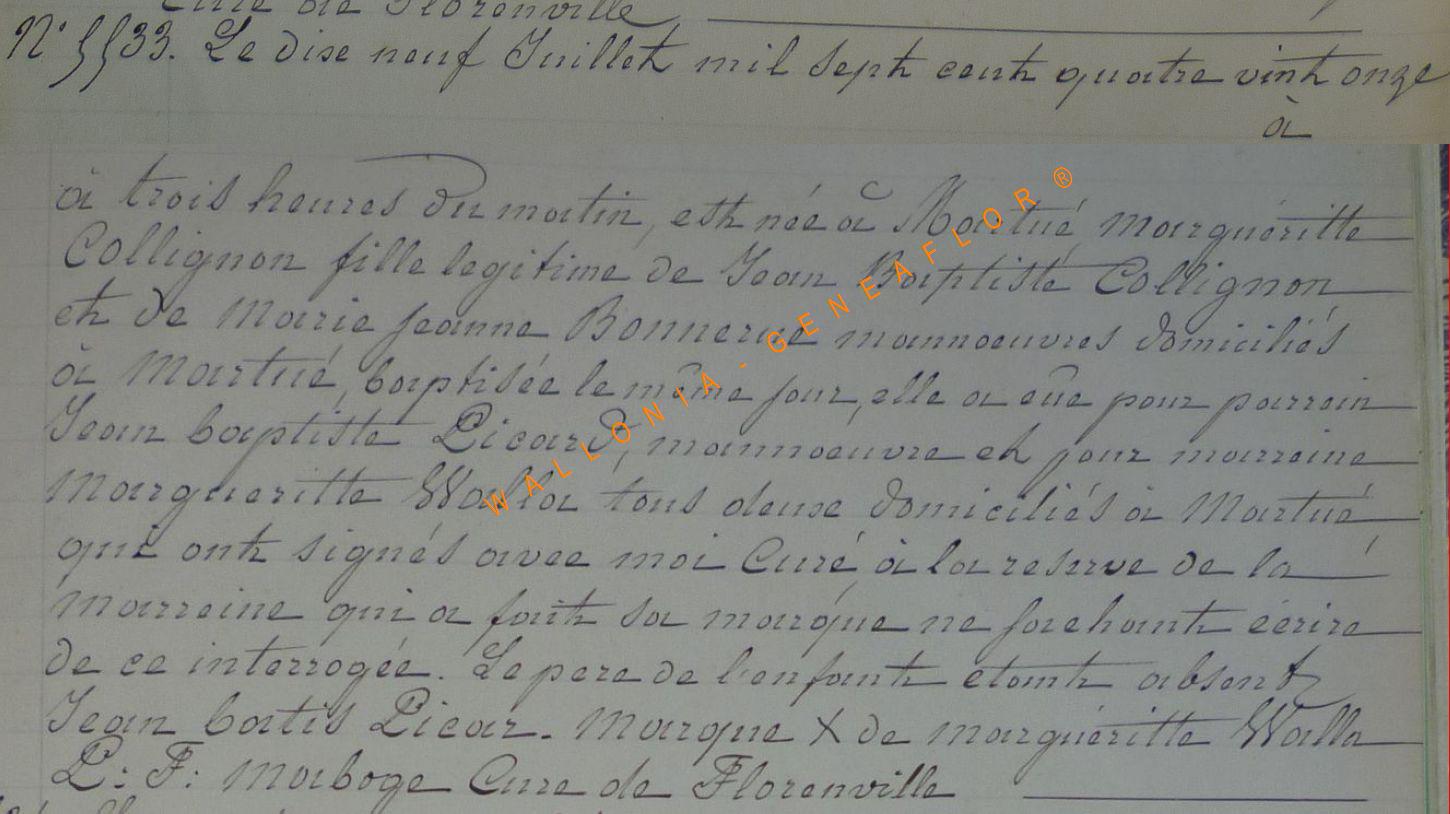 Cure de Florenville
N° 5533. Le dixe neuf Juillet mil sept cent quatre vint onze
à
à trois heures du matin, est née à Martué Marguéritte
Collignon fille legitime de Jean Baptiste Collignon
et de Marie Jeanne Bonnerue mannoeuvres domiciliés
à Martué, baptisée le même jour, elle a eûe pour parrain
Jean baptiste Picard, mannoeuvre et pour marreine
Margueritte Walla tous deuxe domiciliés à Martué
qui ont signés avec moi Curé, à la reserve de la
marreine qui a fait sa marque ne sachant écrire
de ce interrogée. Le pere de l'enfant etant absent
Jean batis Picar. Marque X de Marguéritte Walla
P: F: Maboge Cure de Florenville
WALLONIA - GENEAFLOR ®